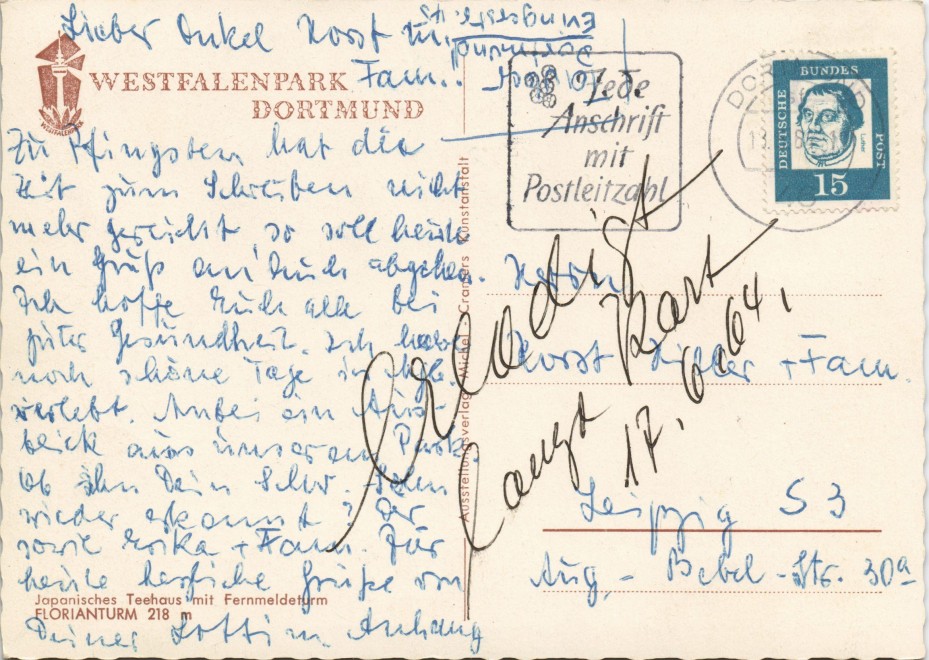 Lieber Onkel Horst und
Fam.
WESTFALENPARK
DORTMUND
WESTFALENPARK
Zu Pfingsten hat die
Zeit zum Schreiben nicht
mehr gereicht, so soll heute
ein Gruß an Euch abgehen.
Ich hoffe Euch alle bei
guter Gesundheit. Ich habe
noch schöne Tage in
verlebt. Anbei ein Aus-
blick aus unserem Park.
Ob ihn Dein Schw.
wieder erkannt? Der
sowie Erika + Fam. Für
heute herzliche Grüße von
Deiner Lotti m. Anhang
Japanisches Teehaus mit Fernmeldeturm
FLORIANTURM 218 m
Ausstellungsverlag Michel - Cramers Kunstanstalt
Dortmund
Jede
Anschrift
mit
Postleitzahl
DEUTSCHE
BUNDES
POST
Luther
15
Herrn
Horst + Fam.
Leipzig S 3
Aug.-Bebel-Str. 30a
Erledigt
lange Kart
17.6.64.